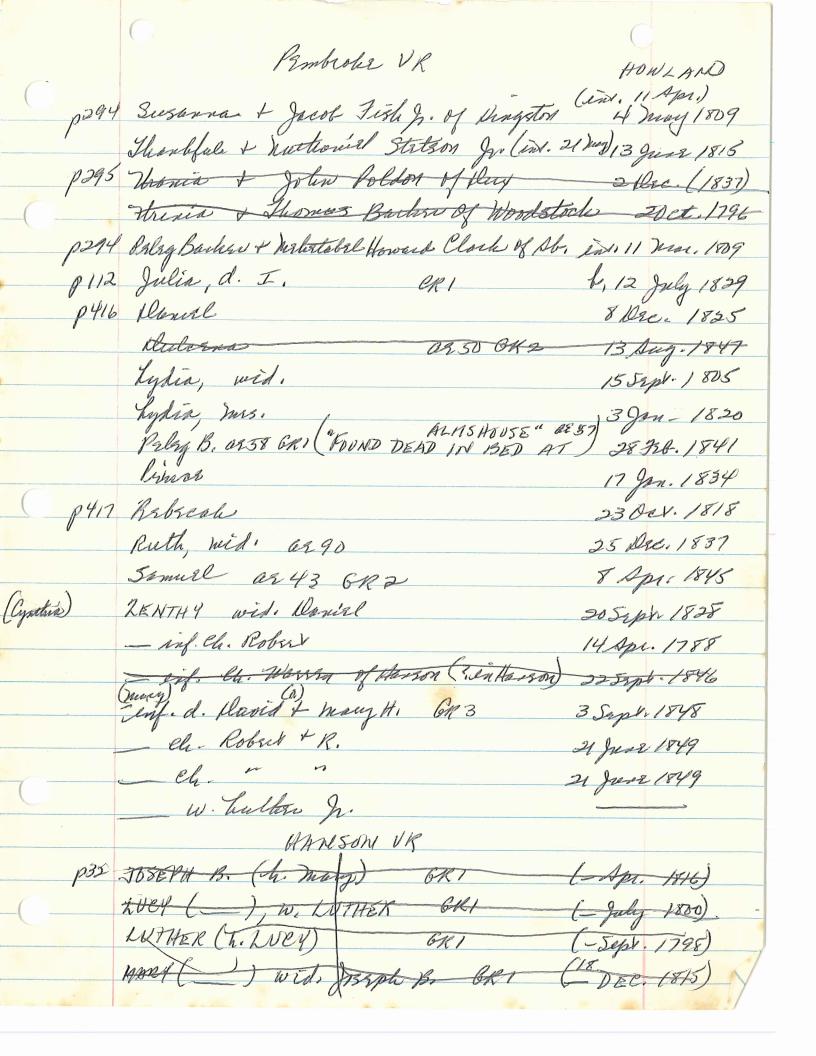 Pembroke VR
HOWLAND
(int. 11 Apr.)
p294 Susanna + Jacob Fish Jr. of Kingston 4 May 1809
Thankful + Nathaniel Stetson Jr. (int. 21 May) 13 June 1815
p295 Urania + John Poldon of Dux 2 Dec. (1837)
Urania + Thomas Barker of Woodstock 2 Oct. 1796
p294 Peleg Barker + Mehetabel Howard Clark of Ab. int. 11 Mar. 1809
p112 Julia, d. I. CR1 b. 12 July 1829
p416 Daniel 8 Dec. 1825
ae 50 GR2 13 Aug. 1847
Lydia, wid. 15 Sept. 1805
Lydia, Mrs. 3 Jan - 1820
ALMSHOUSE" ae 57
Peleg B. ae 58 GR1 ("FOUND DEAD IN BED AT ) 28 Feb. 1841
17 Jan. 1834
p417 Rebecah 23 Oct. 1818
Ruth, wid. ae 90 25 Dec. 1837
Samuel ae 43 GR2 8 Apr. 1845
(Cynthia) ZENTHY wid. Daniel 20 Sept. 1828
— inf. ch. Robert 14 Apr. 1788
— inf. ch. Warren of Hanson (? in Hanson) 22 Sept. 1846
(Mary) (a)
— inf. d. David + Mary H. GR3 3 Sept. 1848
— ch. Robert + R. 21 June 1849
— ch. " " 21 June 1849
— w. Luther Jr. —
HANSON VR
p35 JOSEPH B. (h. Mary) GR1 (— Apr. 1816)
LUCY ( — ), w. LUTHER GR1 (— July 1800).
LUTHER (h. LUCY) GR1 (— Sept. 1798)
MARY ( — ) wid. Joseph B. GR1 (18 DEC. 1815)